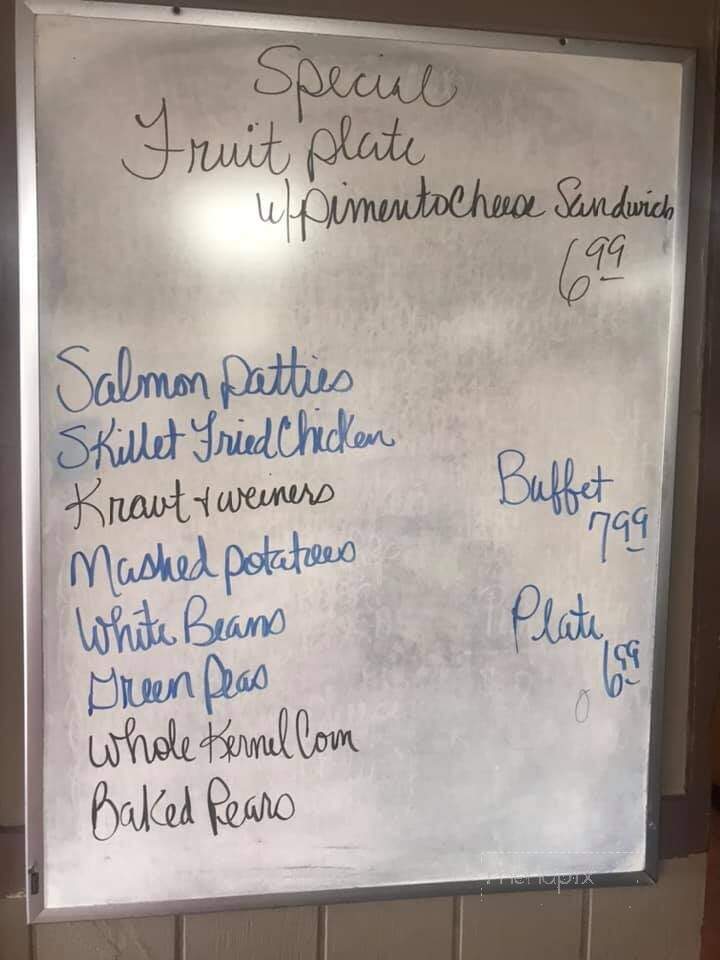 Special
Fruit plate
w/pimento Cheese Sandwich
6.99
Salmon Patties
Skillet Fried Chicken
Kraut & weiners
Buffet
7.99
Mashed potatoes
White Beans
Plate
6.99
Green Peas
Whole Kernel Corn
Baked Pears
menupix